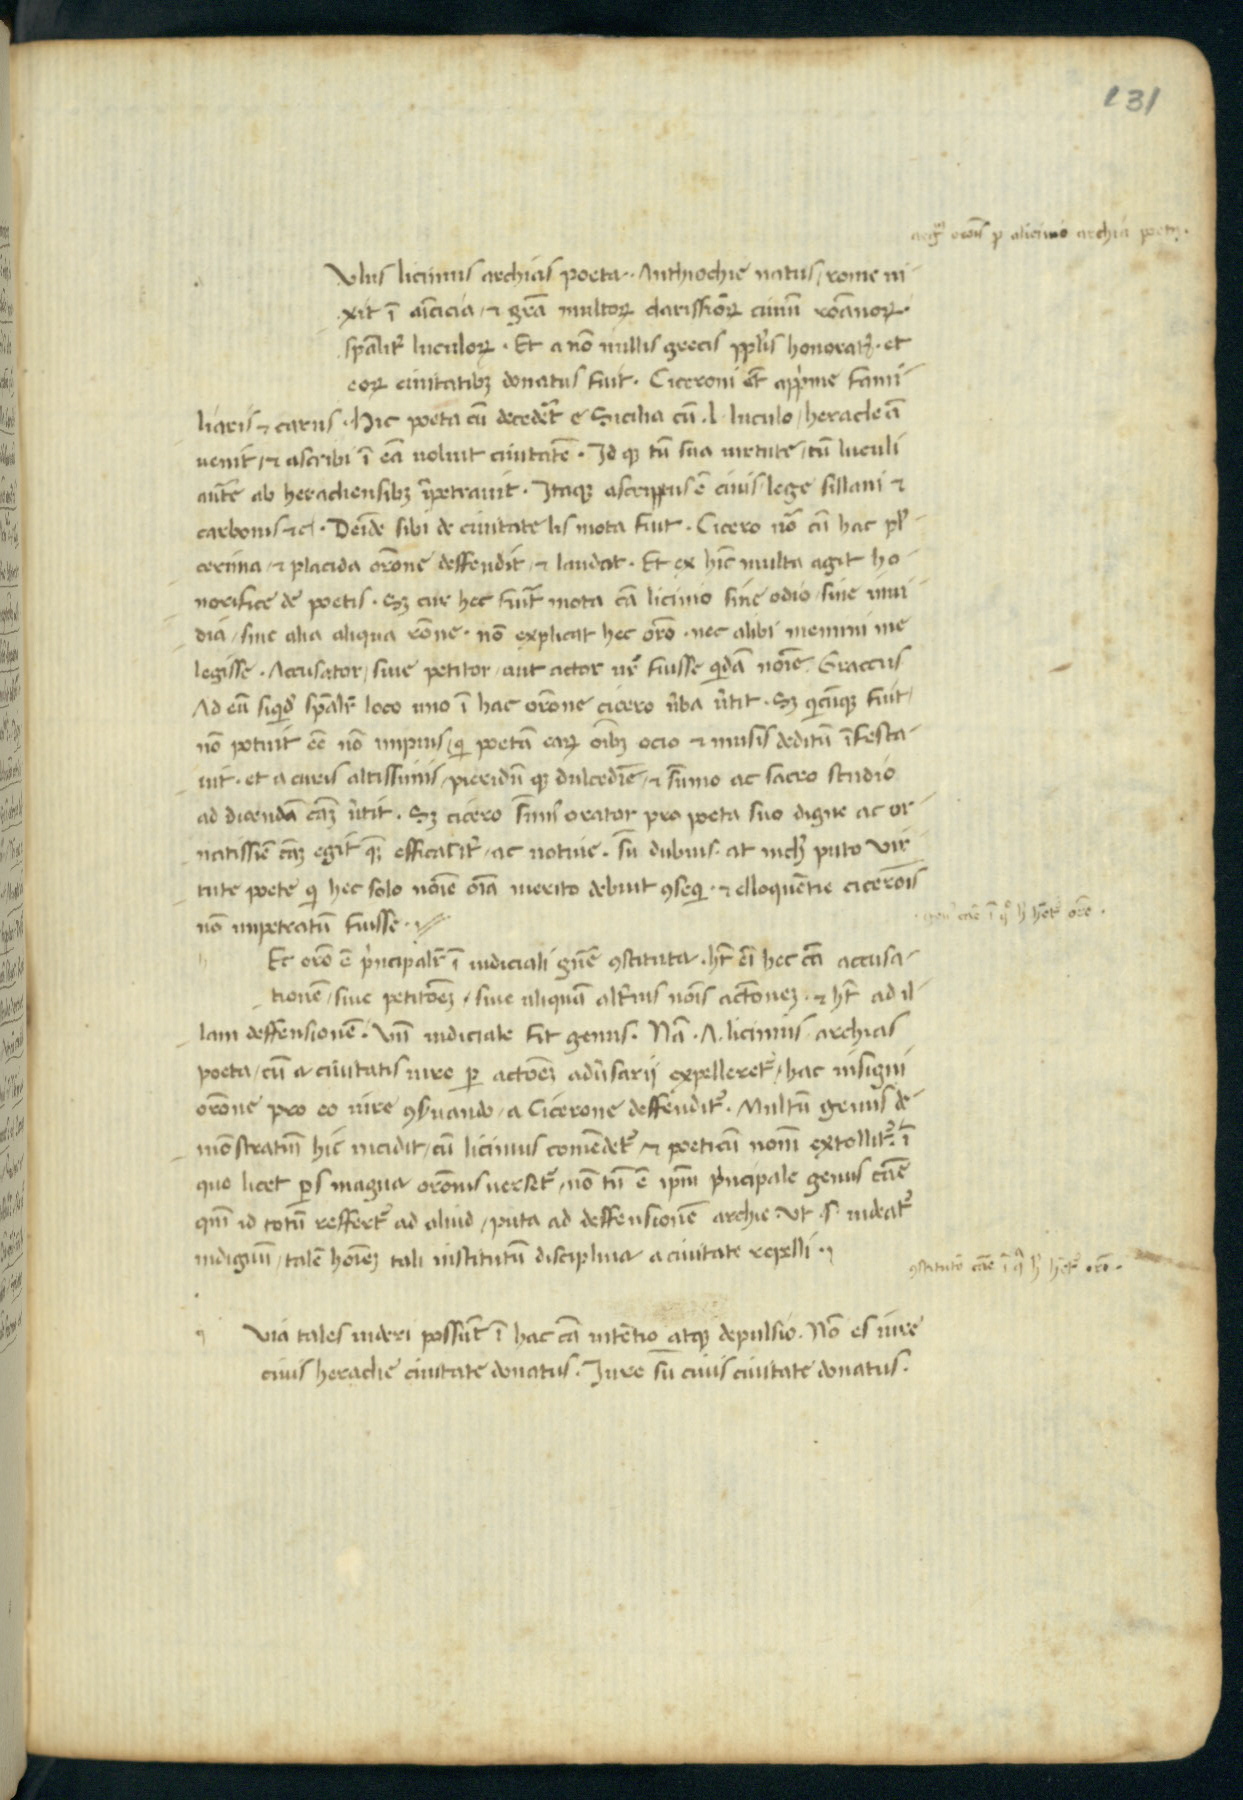 131
arg̃ orõis p̱ alicinio archia poeta.
Vlus licinius archias poeta. Anthiochie natus / rome ui-
xit ĩ aĩcicia / ⁊ grã multoꝝ clarissiõꝝ ciuiũ roãnoꝝ.
spãlit̃ luculoꝝ. Et a nõ nullis grecis ppl̃is honorat᷑. et
eoꝝ ciuitatibꝫ donatus fuit. Ciceroni et̃ app̃me fami-
liaris ⁊ carus. Hic poeta cũ decedet̃ e Sicilia cũ .l. luculo / heracleã
uenit / ⁊ ascribi ĩ eã uoluit ciuitatẽ. Id qꝫ tũ sua uirtute / tũ luculi
auṫe ab heracliensibꝫ ĩpetrauit. Itaqꝫ ascriptus ẽ ciuis lege sillani ⁊
carbonis ⁊c̃. Deĩde sibi de ciuitate lis mota fuit. Cicero uõ eũ hac pl̃-
cerima / ⁊ placida orõne deffendit / ⁊ laudat. Et ex hic multa agit ho-
norifice de poetis. Sꝫ cur hec fuit̃ mota cã licinio siue odio / siue inui-
dia / siue alia aliqua rõne. nõ explicat hec orõ. nec alibi memini me
legisse. Accusator / siue petitor / aut actor ur̃ fuisse q̇dã noĩe Graccus
Ad eũ siqd̃ spãlit̃ loco uno ĩ hac orõne cicero ũba ũtit. Sꝫ qcũqꝫ fuit /
nõ potuit eẽ nõ impius / qi poetã eaꝝ oĩbꝫ ocio ⁊ musis deditũ ĩfesta-
uit. et a curis altissimis / pieridũ qꝫ dulcedĩe / ⁊ sũmo ac sacro studio
ad dicendã cãꝫ ũtit. Sꝫ cicero sũms orator pro poeta suo digne ac or-
natissiẽ cãꝫ egit qꝫ efficacit̃ / ac notiue. sũ dubius. at mch̃ puto uir-
tute poete qi hec solo noĩe oĩa merito debuit ꝯseq. ⁊ elloquẽtie cicerõis
nõ impetratũ fuisse.
genꝰ cãe ĩ qͦ h̃ het̃ orõ.
Ec orõ ẽ p̃ncipalit̃ ĩ iudiciali gñe ꝯstituta. ht̃ eĩ hec cã accusa-
tionẽ / siue petitõeꝫ / siue aliquã alt̃ius noĩs actõneꝫ. ⁊ ht̃ ad il-
lam deffensionẽ. Vñ iudiciale fit genus. Nã. A. licinius archias
poeta / cũ a ciuitatis iure ꝑ actõeꝫ adũsarij expelleret᷑ / hac insigni
orõne pro eo iure ꝯẜuando / a Cicerone deffendit᷑. Multũ genus de-
mõstratiũ hic incidit / cũ licinius comẽdet᷑ / ⁊ poeticũ nomẽ extollit᷑. ĩ
quo licet ꝑs magna orõnis uerset᷑ / nõ tñ ẽ ipm̃ p̃ncipale genus cãe
qm̃ id totũ reffert᷑ ad aliud / puta ad deffensionẽ archie. Vt .s. uideat᷑
indignũ / talẽ hoĩeꝫ tali institutũ disciplina a ciuitate repelli.
ꝯstitutõ cãe ĩ q̃ h̃ het̃ orõ.
Via tales uideri possũt ĩ hac cã intẽtio atqꝫ depulsio. Nõ es iure
ciuis heraclie ciuitate donatus. Iure sũ ciuis ciuitate donatus.